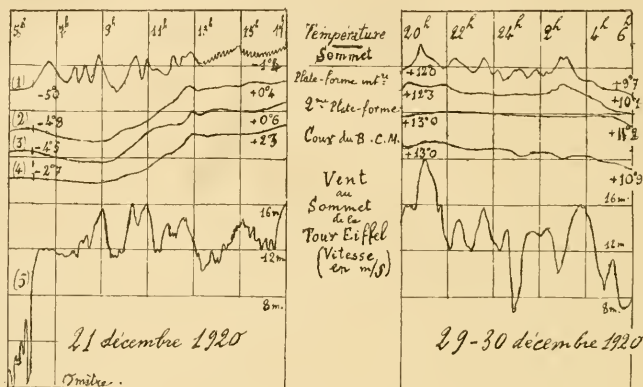 5h 7h 9h 11h 13h 15h 17h
(1) -5°0 -1°4
(2) -4°8 +0°4
(3) -4°5 +0°6
(4) -2°7 +2°3
16m
12m
(5)
8m.
21 décembre 1920
0 mètre.
Température
Sommet
Plate-forme intre
2me Plate-forme
Cour du B.C.M.
Vent
au
Sommet
de la
Tour Eiffel
(Vitesse
en m/s)
20h 22h 24h 2h 4h 6h
+12°0 +9°7
+12°3 +10°1
+13°0
+13°0 +10°9
16m.
12m
8m.
29-30 décembre 1920